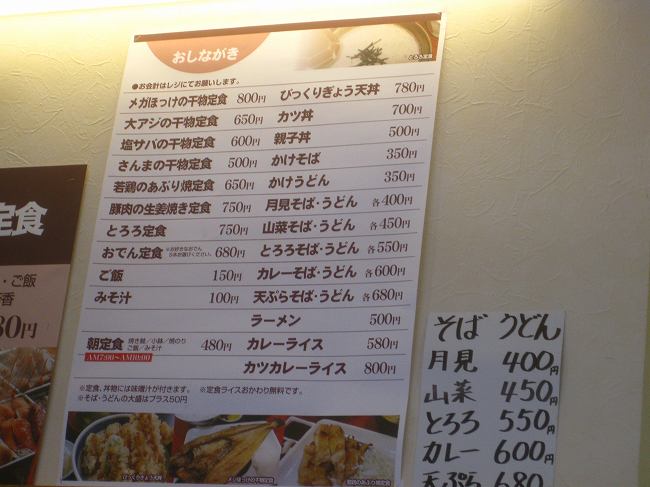 おしながき
とろろ定食
●お会計はレジにてお願いします。
メガほっけの干物定食 800円
大アジの干物定食 650円
塩サバの干物定食 600円
さんまの干物定食 500円
若鶏のあぶり焼定食 650円
豚肉の生姜焼き定食 750円
とろろ定食 750円
おでん定食 ※お好きなおでん5本お選びください。 680円
ご飯 150円
みそ汁 100円
朝定食 焼き鮭/小鉢/焼のり 480円
ご飯/みそ汁
AM7:00~AM10:00
びっくりぎょう天丼 780円
カツ丼 700円
親子丼 500円
かけそば 350円
かけうどん 350円
月見そば・うどん 各400円
山菜そば・うどん 各450円
とろろそば・うどん 各550円
カレーそば・うどん 各600円
天ぷらそば・うどん 各680円
ラーメン 500円
カレーライス 580円
カツカレーライス 800円
※定食、丼物には味噌汁が付きます。 ※定食ライスおかわり無料です。
※そば・うどんの大盛はプラス50円
びっくりぎょう天丼
メガほっけの干物定食
若鶏のあぶり焼定食
定食
・ご飯
香
80円
そば うどん
月見 400円
山菜 450円
とろろ 550円
カレー 600円
天ぷら 680